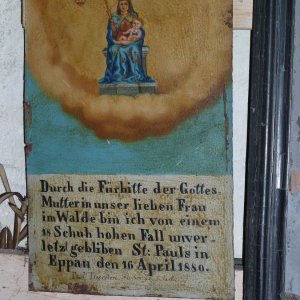 Durch die Fürbitte der Gottes
Mutter in unser lieben Frau
im Walde bin ich von einem
18 Schuh hohen Fall unver-
letzt gebliben St: Pauls in
Eppau den 16 April 1880.